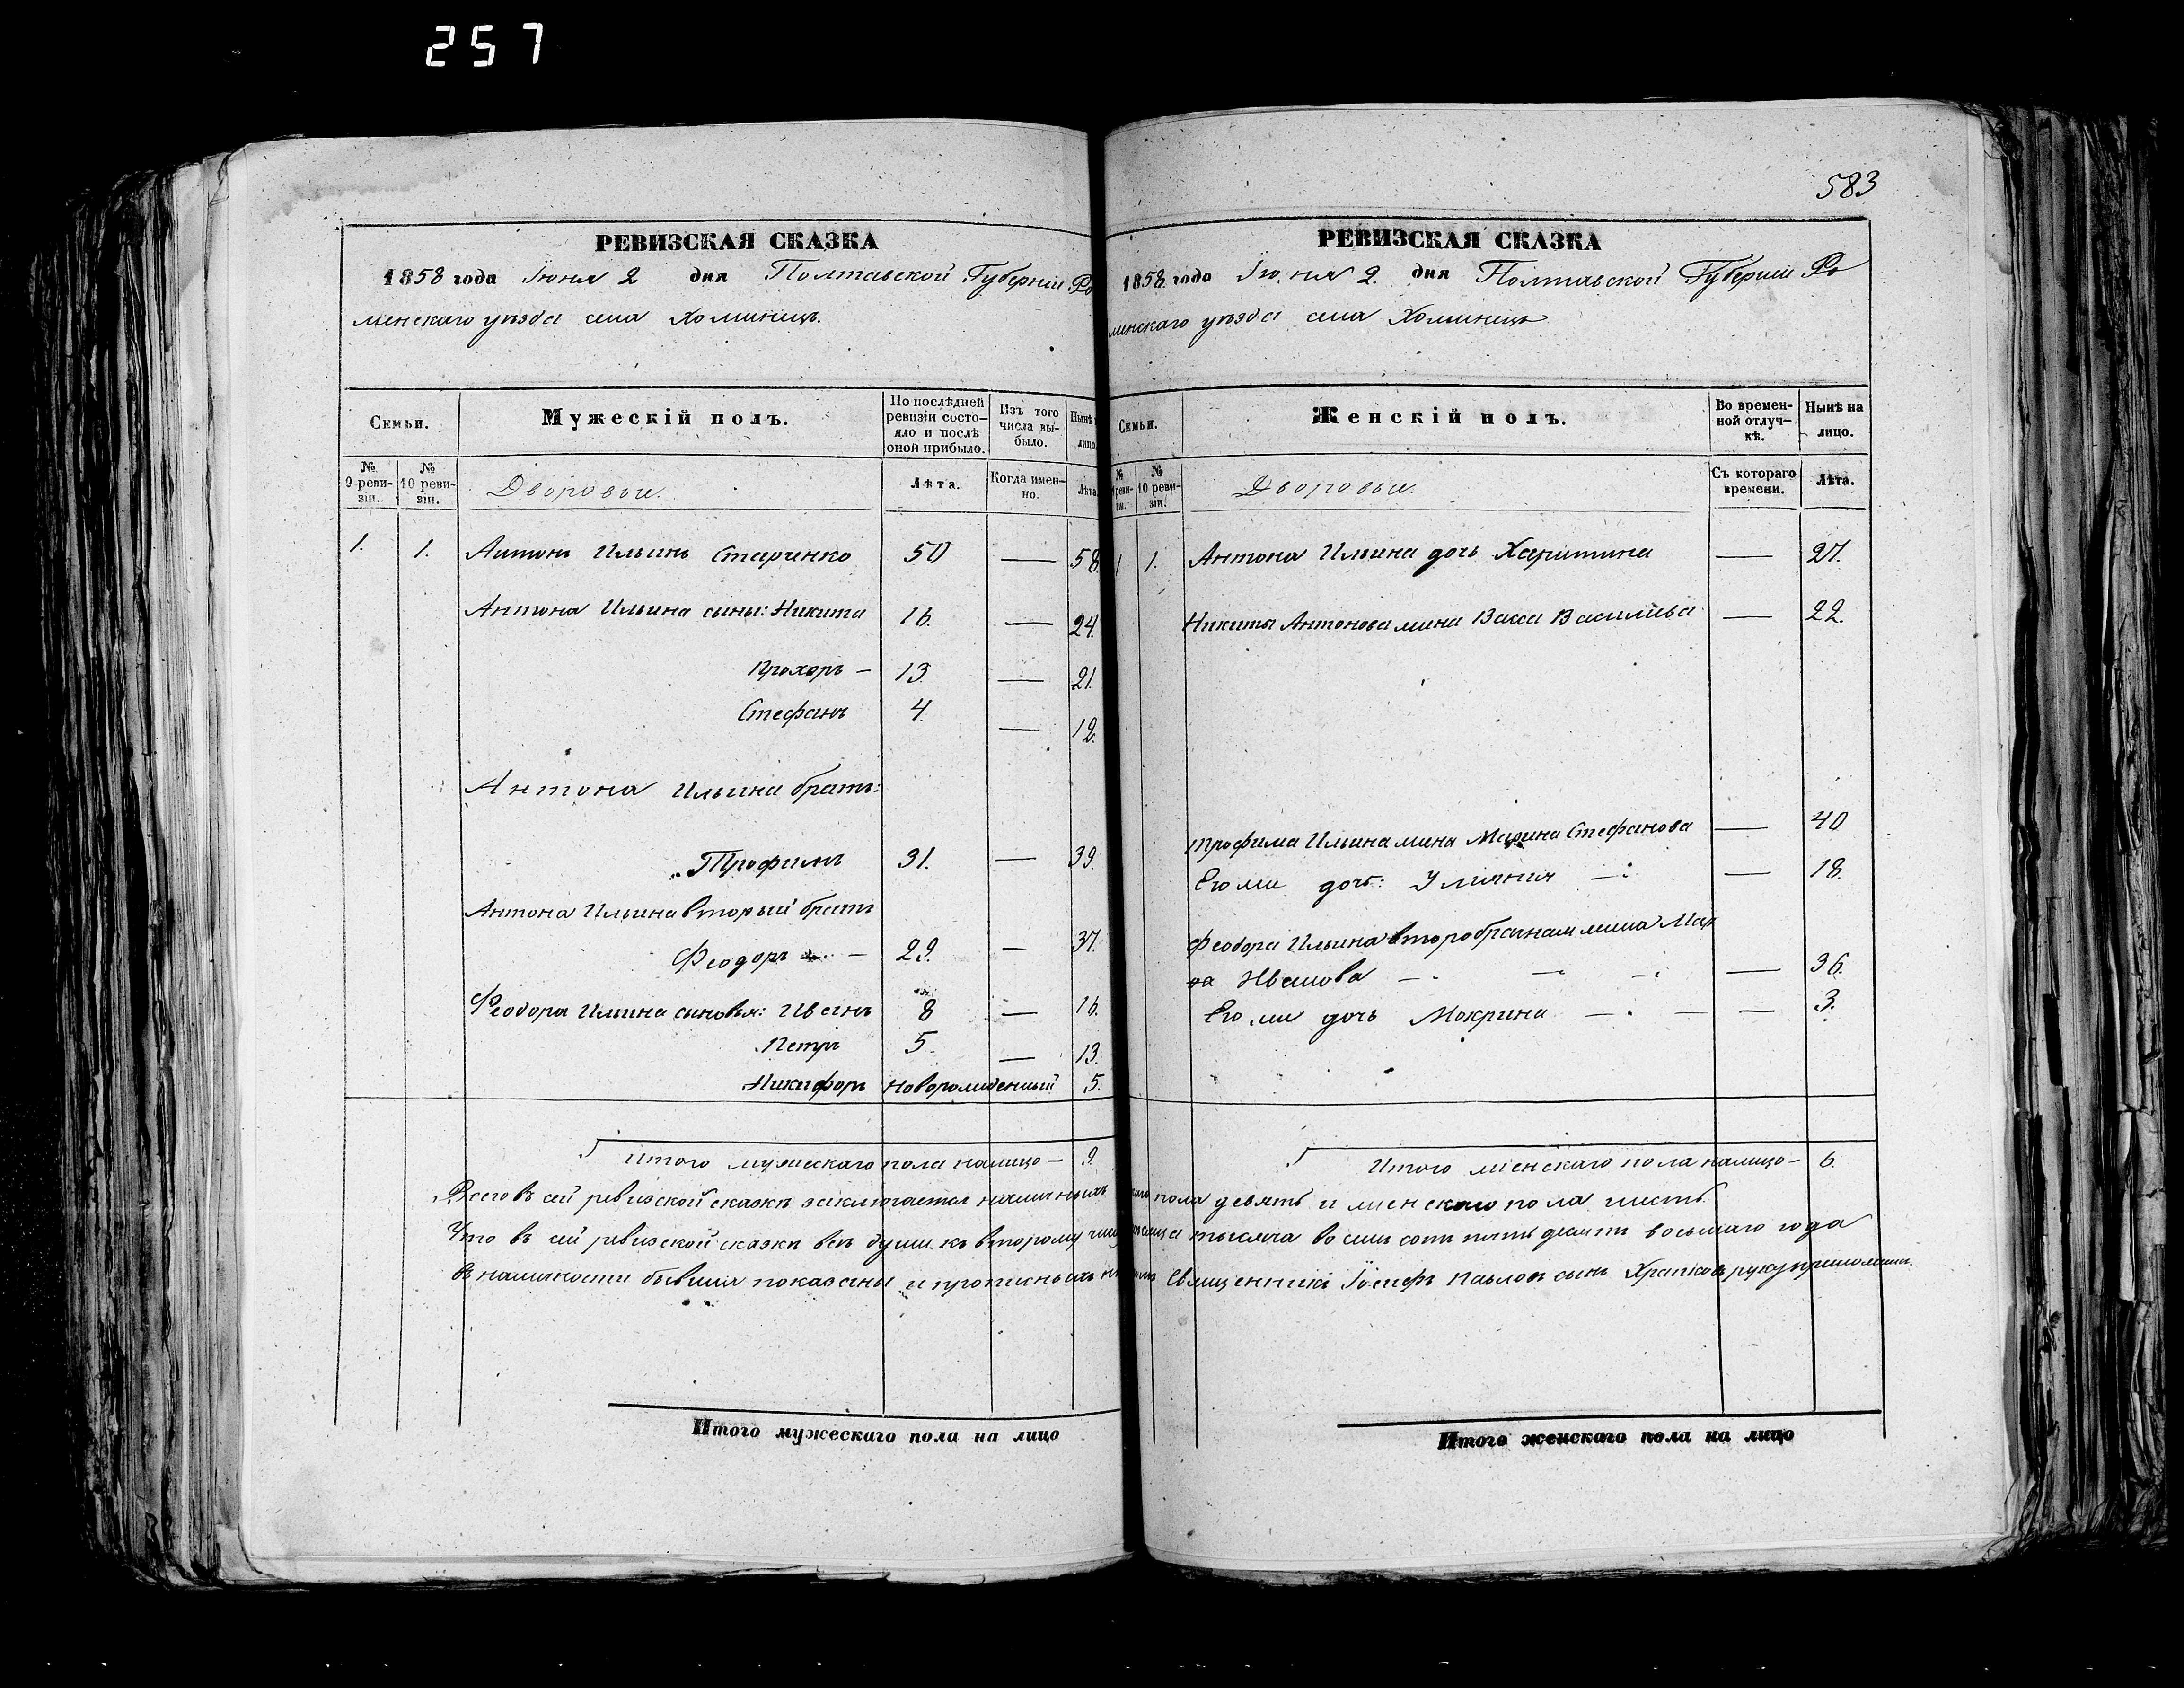 257
583
РЕВИЗСКАЯ СКАЗКА
1858 года Іюня 2 дня Полтавской Губерніи Ро
менскаго уѣзда села Хоминецъ.
Семьи.
Мужескій полъ.
По послѣдней ревизіи состояло и послѣ оной прибыло.
Изъ того числа выбыло.
Нынѣ лицо
№ 9 ревизіи.
№ 10 ревизіи.
Дворовыи.
Лѣта.
Когда именно.
Лѣта.
1. 1. Антонъ Ильинъ Старченко 50 — 58.
Антона Ильина сыны: Никита 16. — 24.
Прохоръ — 13. — 21.
Стефанъ 4. — 12.
Антона Ильина братъ:
Трофимъ 31. — 39.
Антона Ильина вторый братъ
Феодоръ — 29. — 37.
Феодора Ильина сыновья: Иванъ 8 — 16.
Петръ 5. — 13.
Никифоръ новорожденный 5.
Итого мужескаго пола налицо — 9.
РЕВИЗСКАЯ СКАЗКА
1858. года Іюня 2. дня Полтавской Губерніи Ро
менскаго уѣзда села Хоминецъ
Семьи.
Женскій полъ.
Во временной отлучкѣ.
Нынѣ на лицо.
№ ревизіи.
№ 10 ревизіи.
Дворовыи.
Съ котораго времени.
Лѣта.
1 1. Антона Ильина дочь Харитина — 27.
Никиты Антонова жена Васса Васильева — 22.
Трофима Ильина жена Марина Стефанова — 40
Его же дочь: Улянія — 18.
Феодора Ильина второбрачная жена Мар
на Иванова — 36.
Его же дочь Мокрина — 3.
Итого женскаго пола налицо — 6.
Всего въ сей ревизской сказкѣ заключается наличныхъ пола девять и женскаго пола шесть.
Что въ сей ревизской сказкѣ всѣ души къ второму тысяча восемь сотъ пятьдесятъ восьмаго года
въ наличности бывшія показаны и прописныхъ Священникъ Іосифъ Павловъ сынъ руку приложилъ.
Итого мужескаго пола на лицо
Итого женскаго пола на лицо